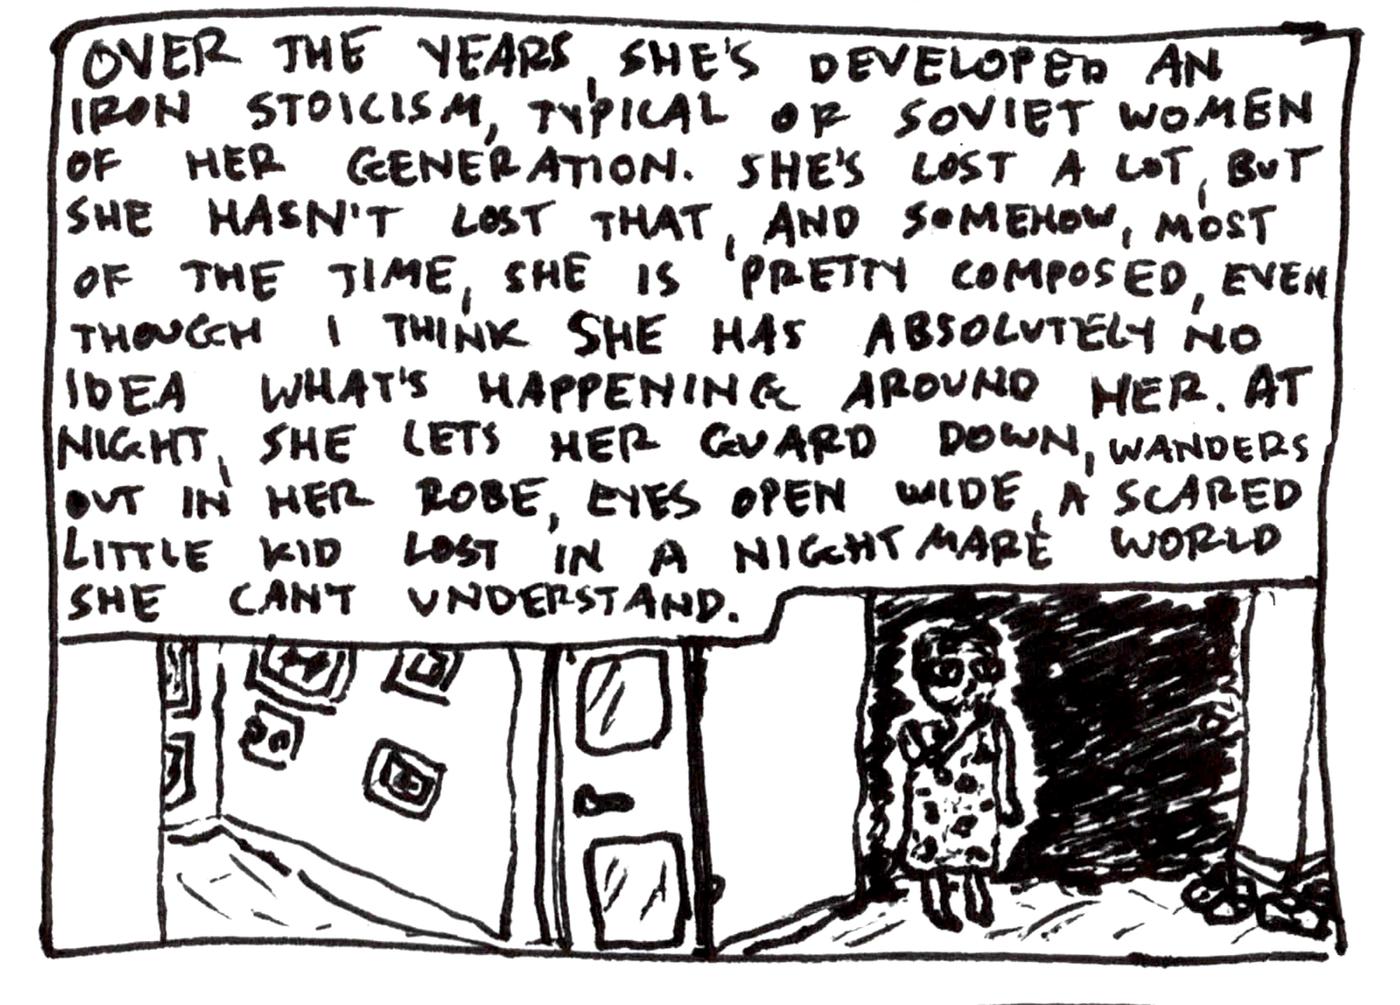 OVER THE YEARS, SHE'S DEVELOPED AN
IRON STOICISM, TYPICAL OF SOVIET WOMEN
OF HER GENERATION. SHE'S LOST A LOT, BUT
SHE HASN'T LOST THAT, AND SOMEHOW, MOST
OF THE TIME, SHE IS PRETTY COMPOSED, EVEN
THOUGH I THINK SHE HAS ABSOLUTELY NO
IDEA WHAT'S HAPPENING AROUND HER. AT
NIGHT, SHE LETS HER GUARD DOWN, WANDERS
OUT IN HER ROBE, EYES OPEN WIDE, A SCARED
LITTLE KID LOST IN A NIGHTMARE WORLD
SHE CAN'T UNDERSTAND.